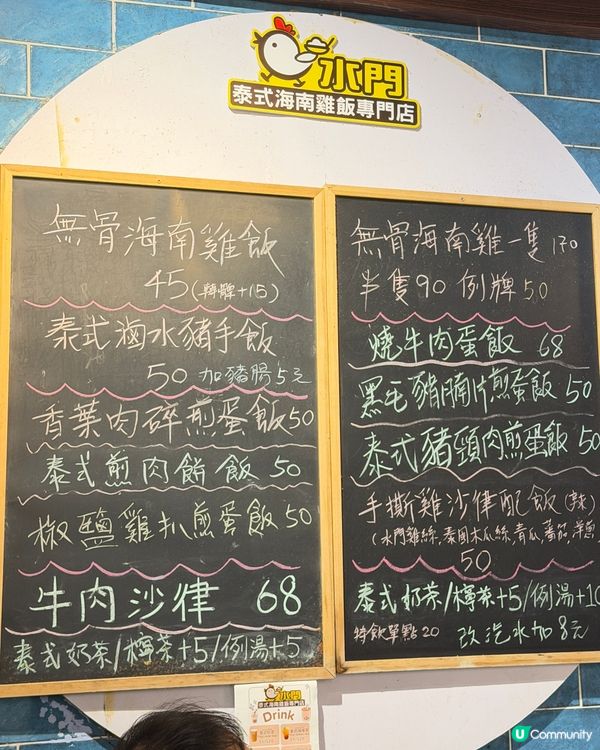 水門
泰式海南雞飯專門店
無骨海南雞飯
45(轉髀+15)
泰式滷水豬手飯
50 加豬腸5元
香葉肉碎煎蛋飯50
泰式煎肉餅飯 50
椒鹽雞扒煎蛋飯50
牛肉沙律 68
泰式奶茶/檸茶+5/例湯+5
無骨海南雞一隻170
半隻90 例牌50
燒牛肉蛋飯 68
黑毛豬腩片煎蛋飯 50
泰式豬頸肉煎蛋飯 50
手撕雞沙律配飯(辣)
(水門雞絲,泰國木瓜絲,青瓜,蕃茄,洋葱
50
泰式奶茶/檸茶+5/例湯+10
特飲單點20 改汽水加8元
水門
泰式海南雞飯專門店
Drink
U Community